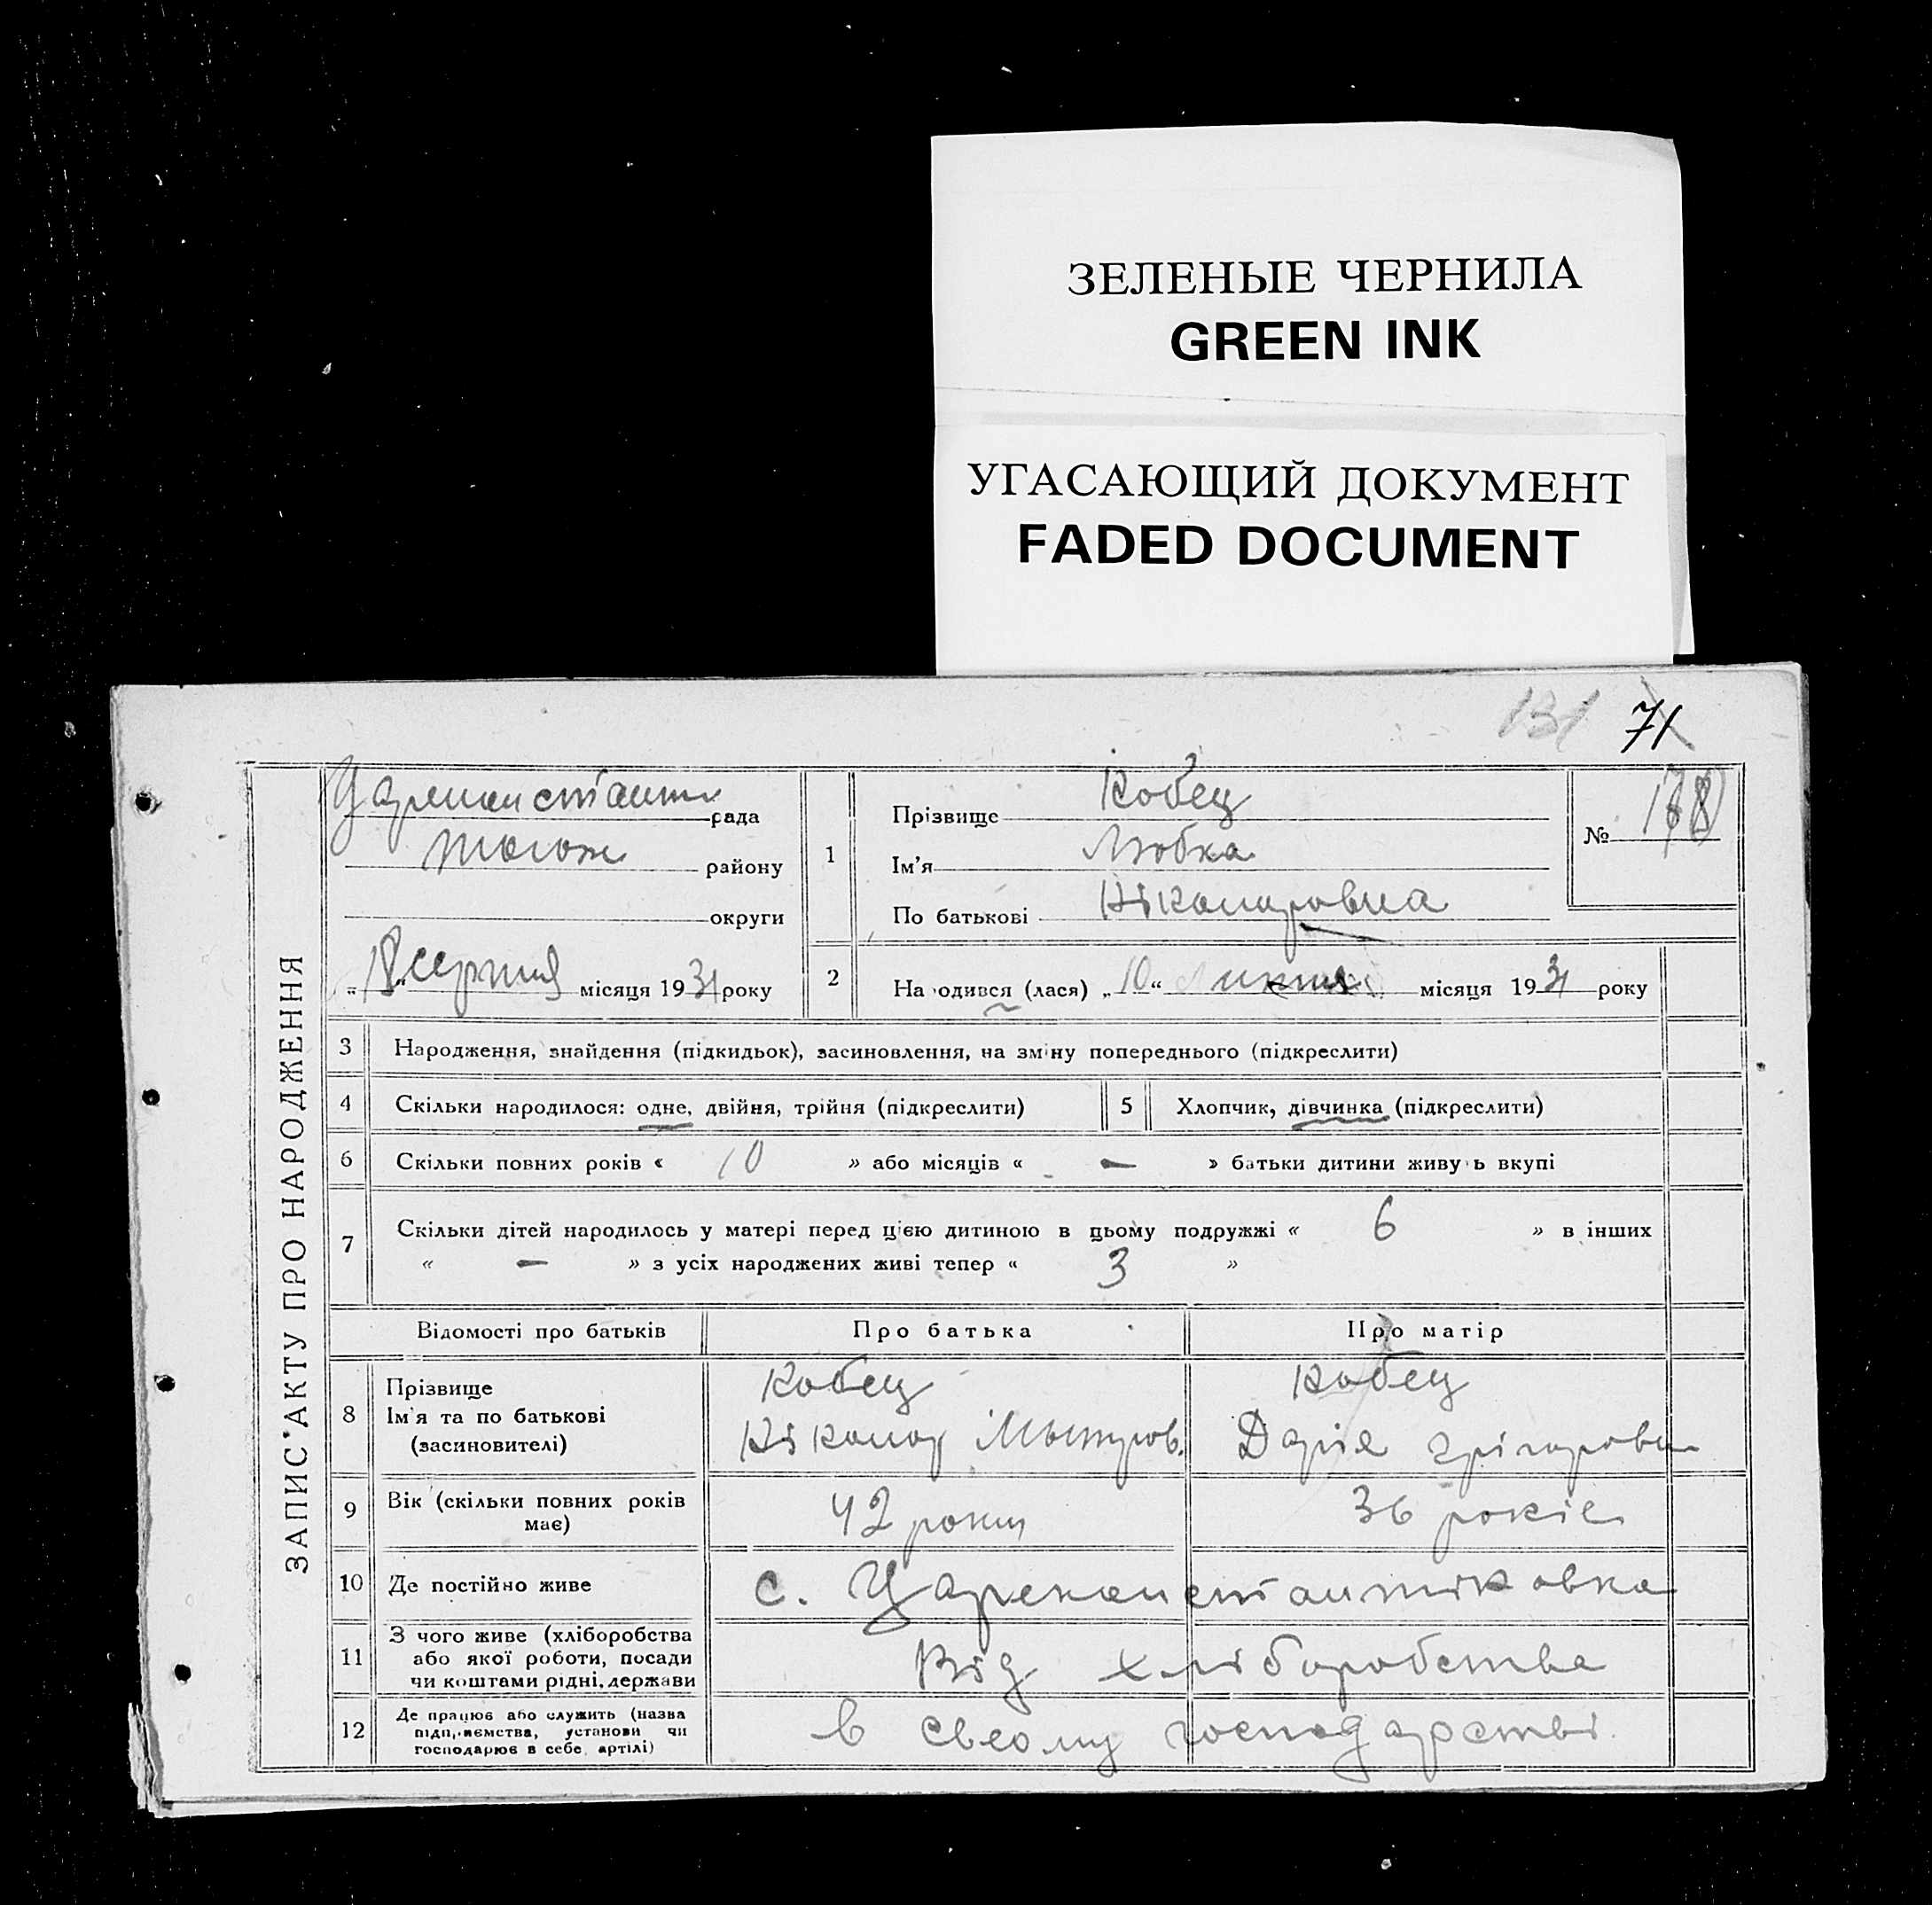 ЗЕЛЕНЫЕ ЧЕРНИЛА
GREEN INK
УГАСАЮЩИЙ ДОКУМЕНТ
FADED DOCUMENT
131 71
ЗАПИС АКТУ ПРО НАРОДЖЕННЯ
Цареконстант рада
району
округи
„18“ серпня місяця 1931 року
1
Прізвище Кобец
Ім'я Любка
По батькові Ніканоровна
№
2
На одився (лася) „10“ Липня місяця 1931 року
3 Народження, знайдення (підкидьок), засиновлення, на зміну попереднього (підкреслити)
4 Скільки народилося: одне, двійня, трійня (підкреслити) 5 Хлопчик, дівчинка (підкреслити)
6 Скільки повних років « 10 » або місяців « — » батьки дитини живу ь вкупі
7 Скільки дітей народилось у матері перед цією дитиною в цьому подружжі « 6 » в інших
« — » з усіх народжених живі тепер « 3 »
Відомості про батьків Про батька Про матір
8 Прізвище Кобец Кобец
Ім'я та по батькові
(засиновителі) Ніканор Дарія Грігоровн
9 Вік (скільки повних років має) 42 роки 36 років
10 Де постійно живе с. Цареконстантіновка
11 З чого живе (хліборобства
або якої роботи, посади
чи коштами рідні, держави Від хліборобства
12 Де працює або служить (назва
підп,иємства, установи чи
господарює в себе, артілі) в своому господарстві